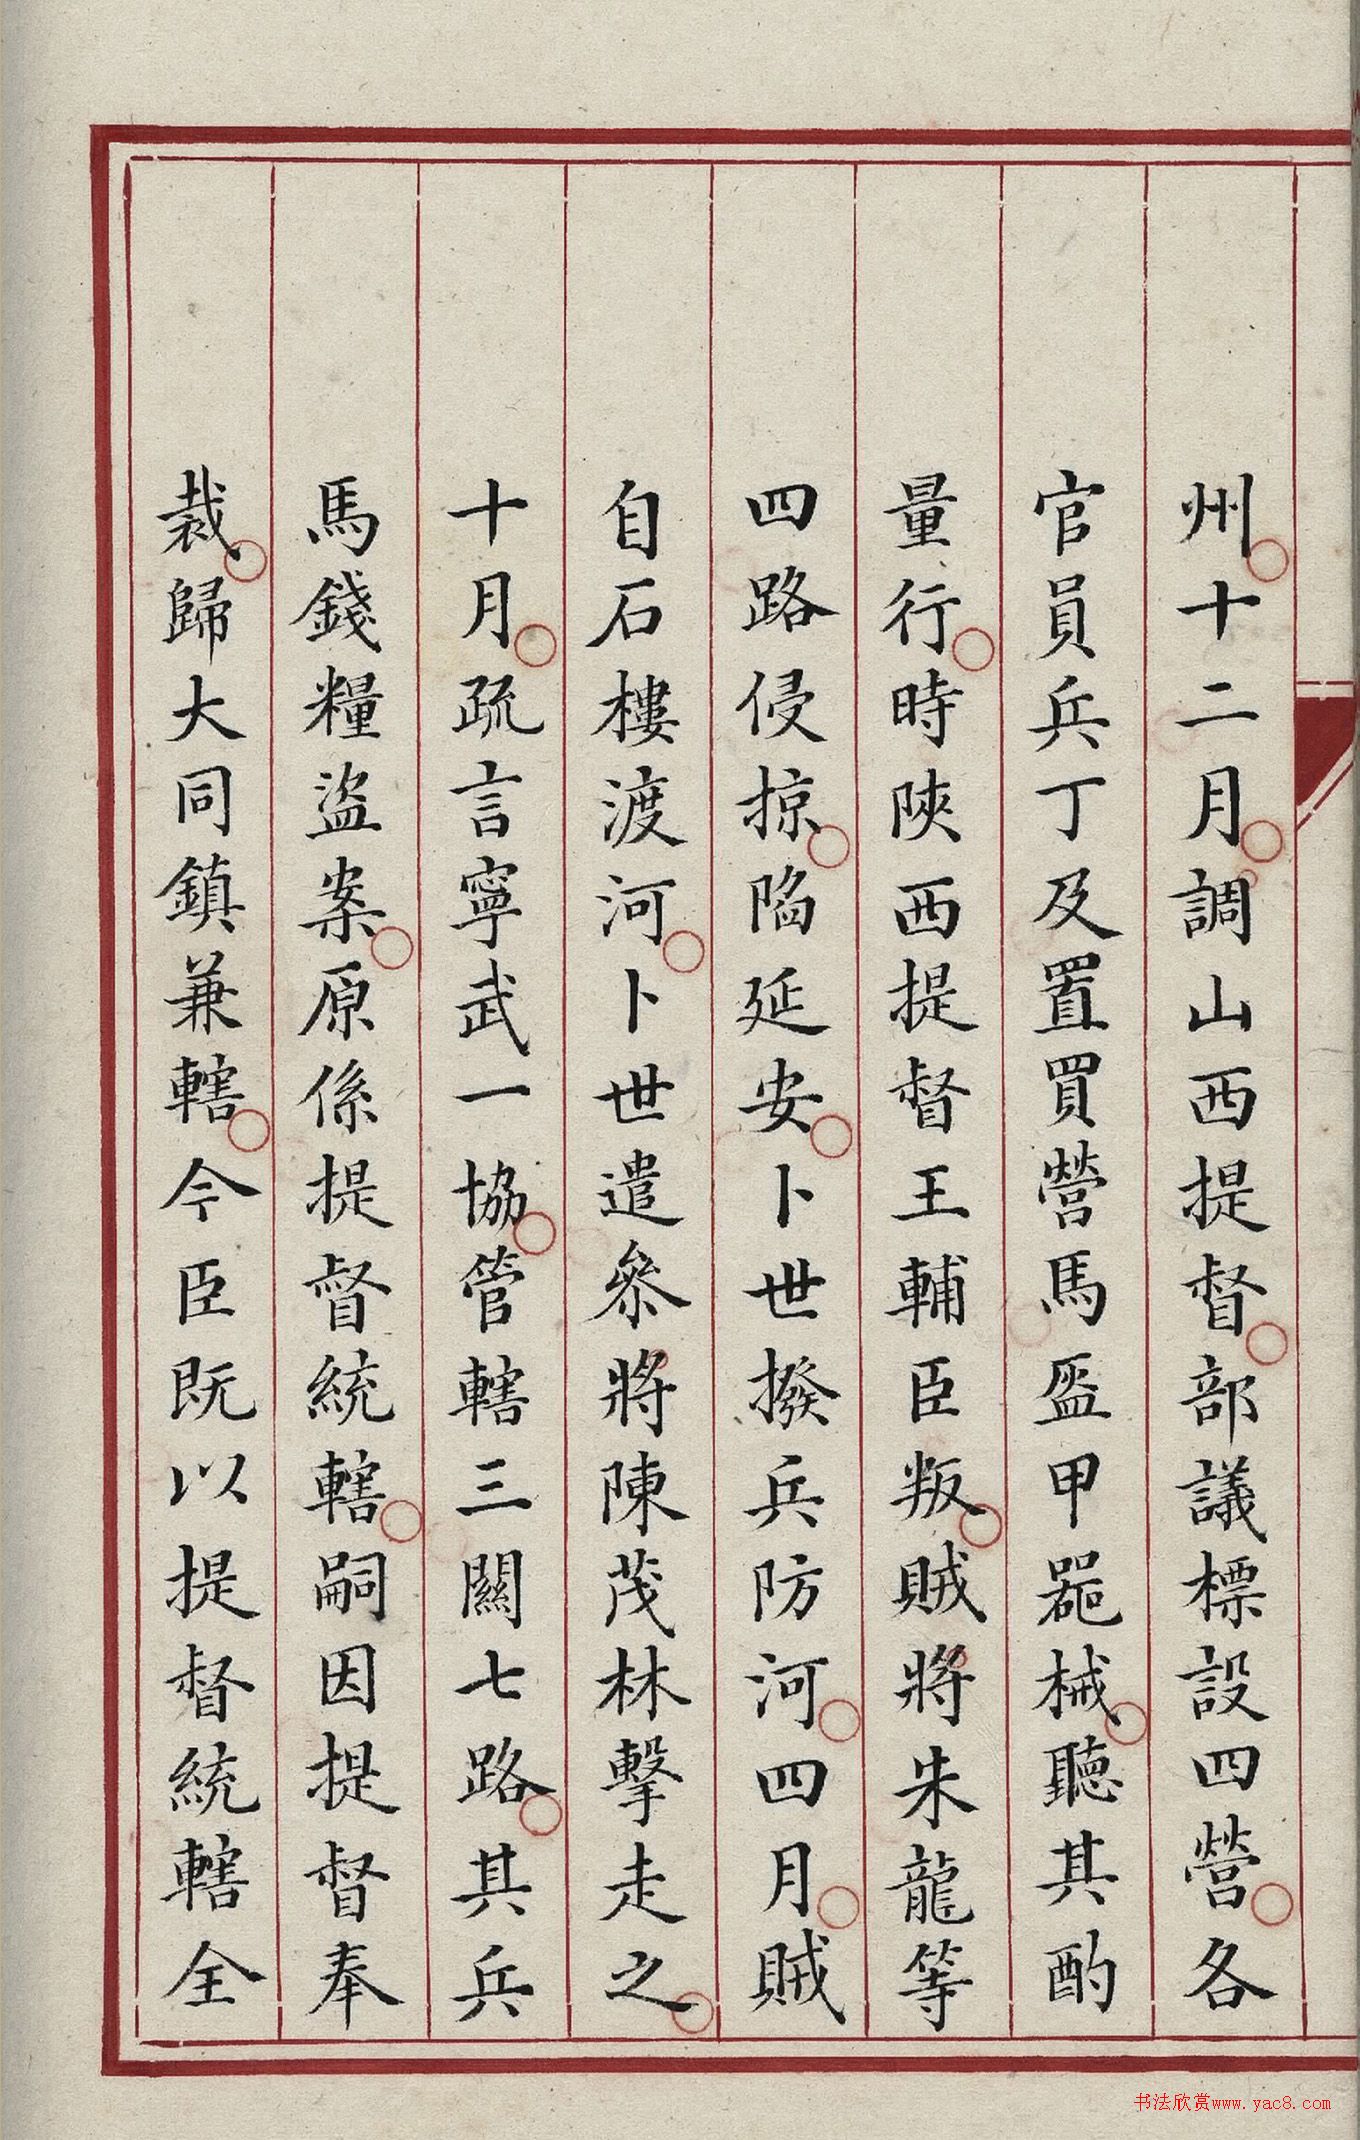 州十二月調山西提督部議標設四營各
官員兵丁及置買營馬盔甲器械聽其酌
量行時陝西提督王輔臣叛賊將朱龍等
四路侵掠陷延安卜世撥兵防河四月賊
自石樓渡河卜世遣叅將陳茂林擊走之
十月疏言寧武一協管轄三關七路其兵
馬錢糧盜案原係提督統轄嗣因提督奉
裁歸大同鎮兼轄今臣既以提督統轄全
书法欣赏www.yac8.com